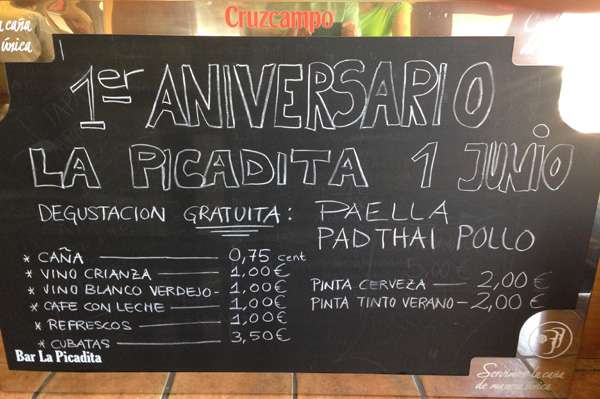 Cruzcampo
la caña
única
1er ANIVERSARIO
LA PICADITA 1 JUNIO
DEGUSTACION GRATUITA: PAELLA
PADTHAI POLLO
* CAÑA 0,75 cent
* VINO CRIANZA 1,00€
* VINO BLANCO VERDEJO 1,00€
* CAFE CON LECHE 1,00€
* REFRESCOS 1,00€
* CUBATAS 3,50€
PINTA CERVEZA 2,00€
PINTA TINTO VERANO 2,00€
Bar La Picadita
Servimos la caña
de manera única